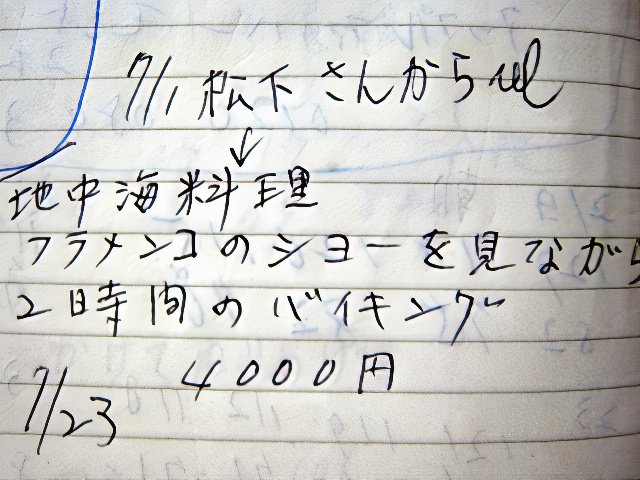 7/1 松下さんからtel
↓
地中海料理
フラメンコのショーを見ながら
2時間のバイキング
4000円
7/23